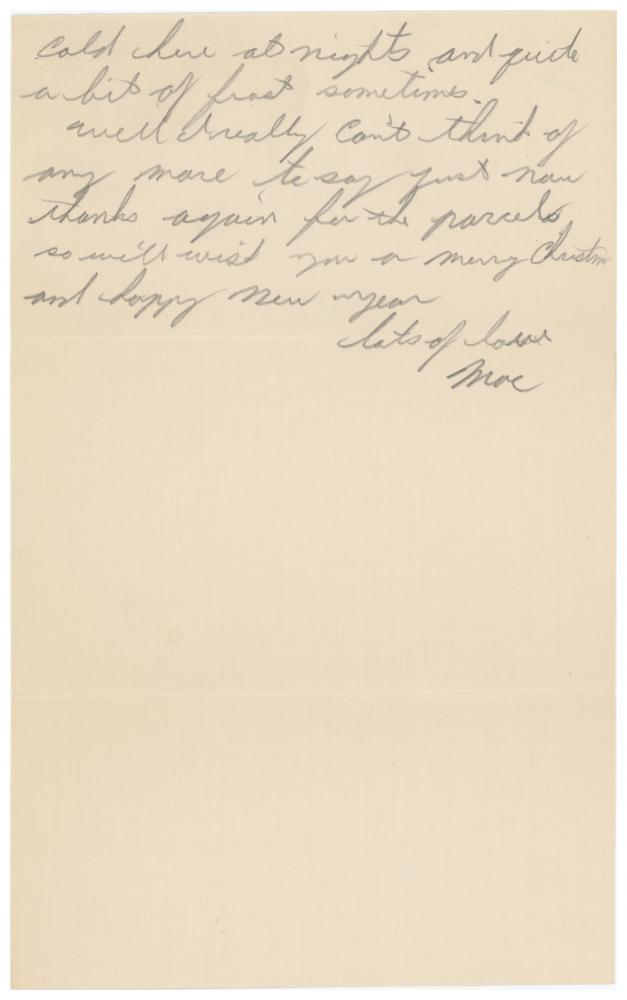 cold here at nights and quite
a bit of frost sometimes.
well I really can't think of
any more to say just now
thanks again for the parcels
so will wish you a merry Christm
and happy new year
lots of love
Moe